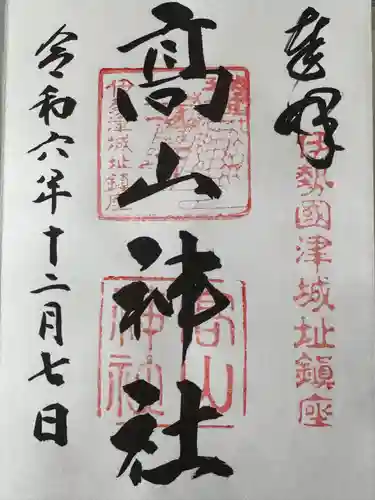 奉拝
伊勢國津城址鎮座
高山神社
伊勢津城址鎮座
高山神社
令和六年十二月七日